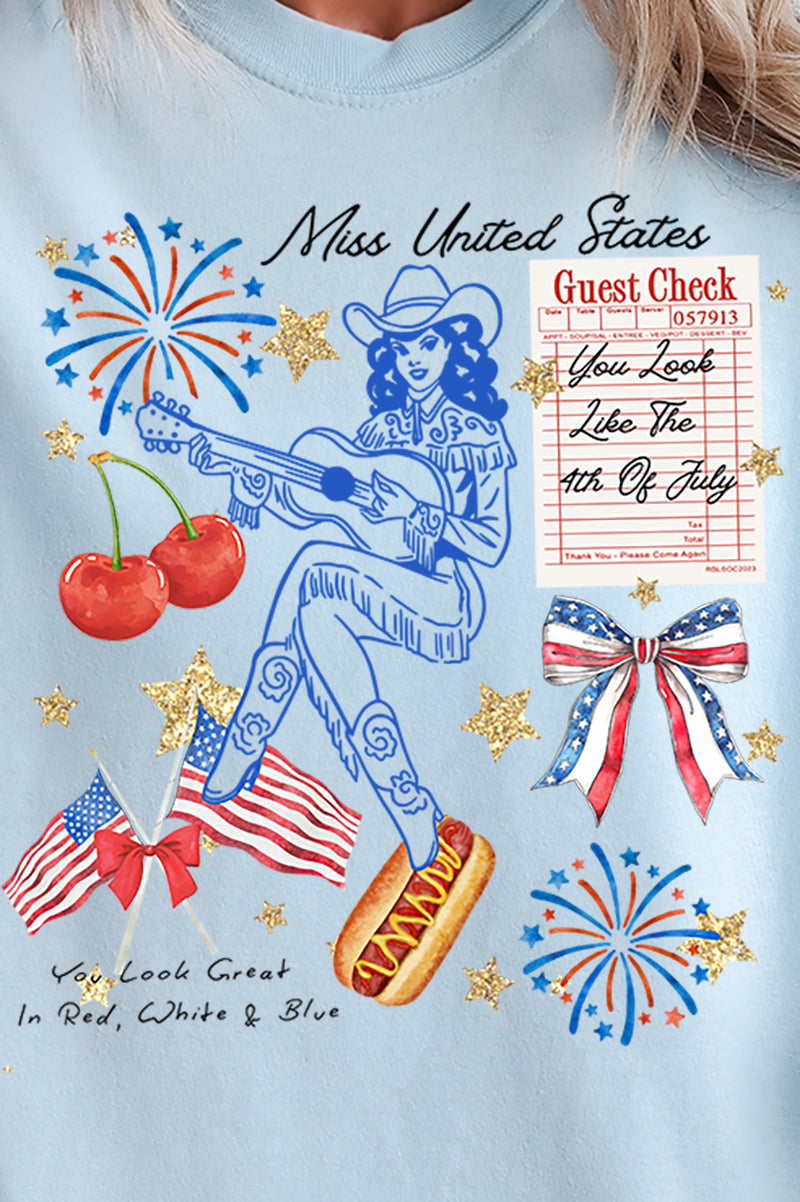 Miss United States
Guest Check
Date Table Guests Server 057913
APPT - SOUP/SAL - ENTREE - VEG/POT - DESSERT - BEV
You Look
Like The
4th Of July
Tax
Total
Thank You - Please Come Again
RBLSOC2023
You Look Great
In Red, White & Blue